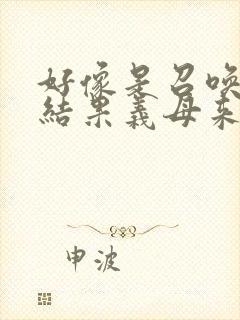 好像是召唤
结果义母来
申波